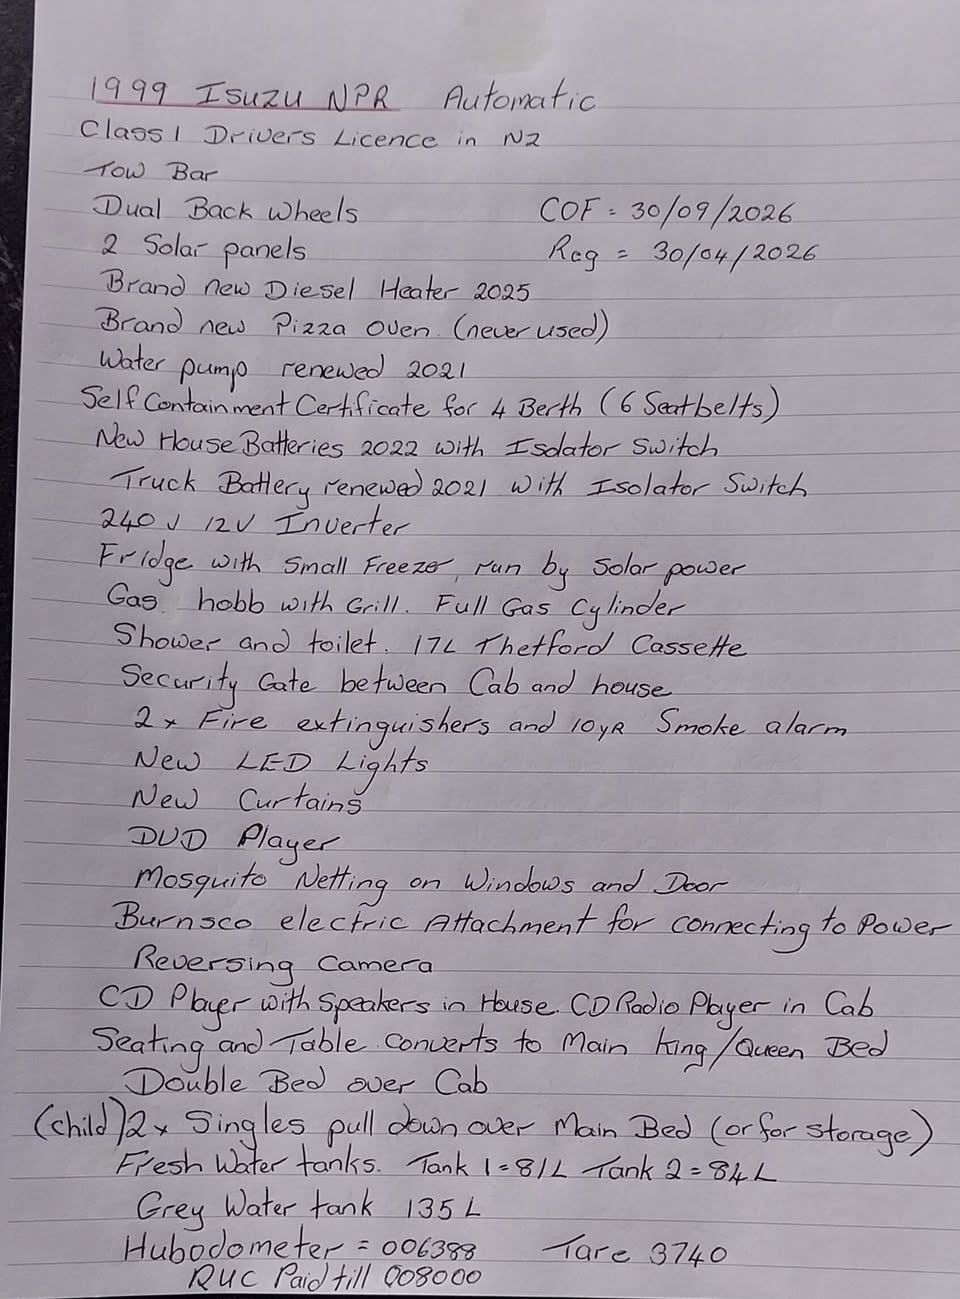 1999 Isuzu NPR Automatic
Class 1 Drivers Licence in NZ
Tow Bar
Dual Back Wheels COF = 30/09/2026
2 Solar panels Reg = 30/04/2026
Brand new Diesel Heater 2025
Brand new Pizza Oven (never used)
Water pump renewed 2021
Self Containment Certificate for 4 Berth (6 Seatbelts)
New House Batteries 2022 with Isolator Switch
Truck Battery renewed 2021 with Isolator Switch
240V 12V Inverter
Fridge with Small Freezer, run by Solar power
Gas hobb with Grill. Full Gas Cylinder
Shower and toilet. 17L Thetford Cassette
Security Gate between Cab and house
2x Fire extinguishers and 10yR Smoke alarm
New LED Lights
New Curtains
DVD Player
Mosquito Netting on Windows and Door
Burnsco electric Attachment for connecting to Power
Reversing Camera
CD Player with Speakers in House. CD Radio Player in Cab
Seating and Table Converts to Main King/Queen Bed
Double Bed over Cab
(child) 2x Singles pull down over Main Bed (or for storage)
Fresh Water tanks. Tank 1 = 81L Tank 2 = 84L
Grey Water tank 135L
Hubodometer = 006388 Tare 3740
RUC Paid till 008000